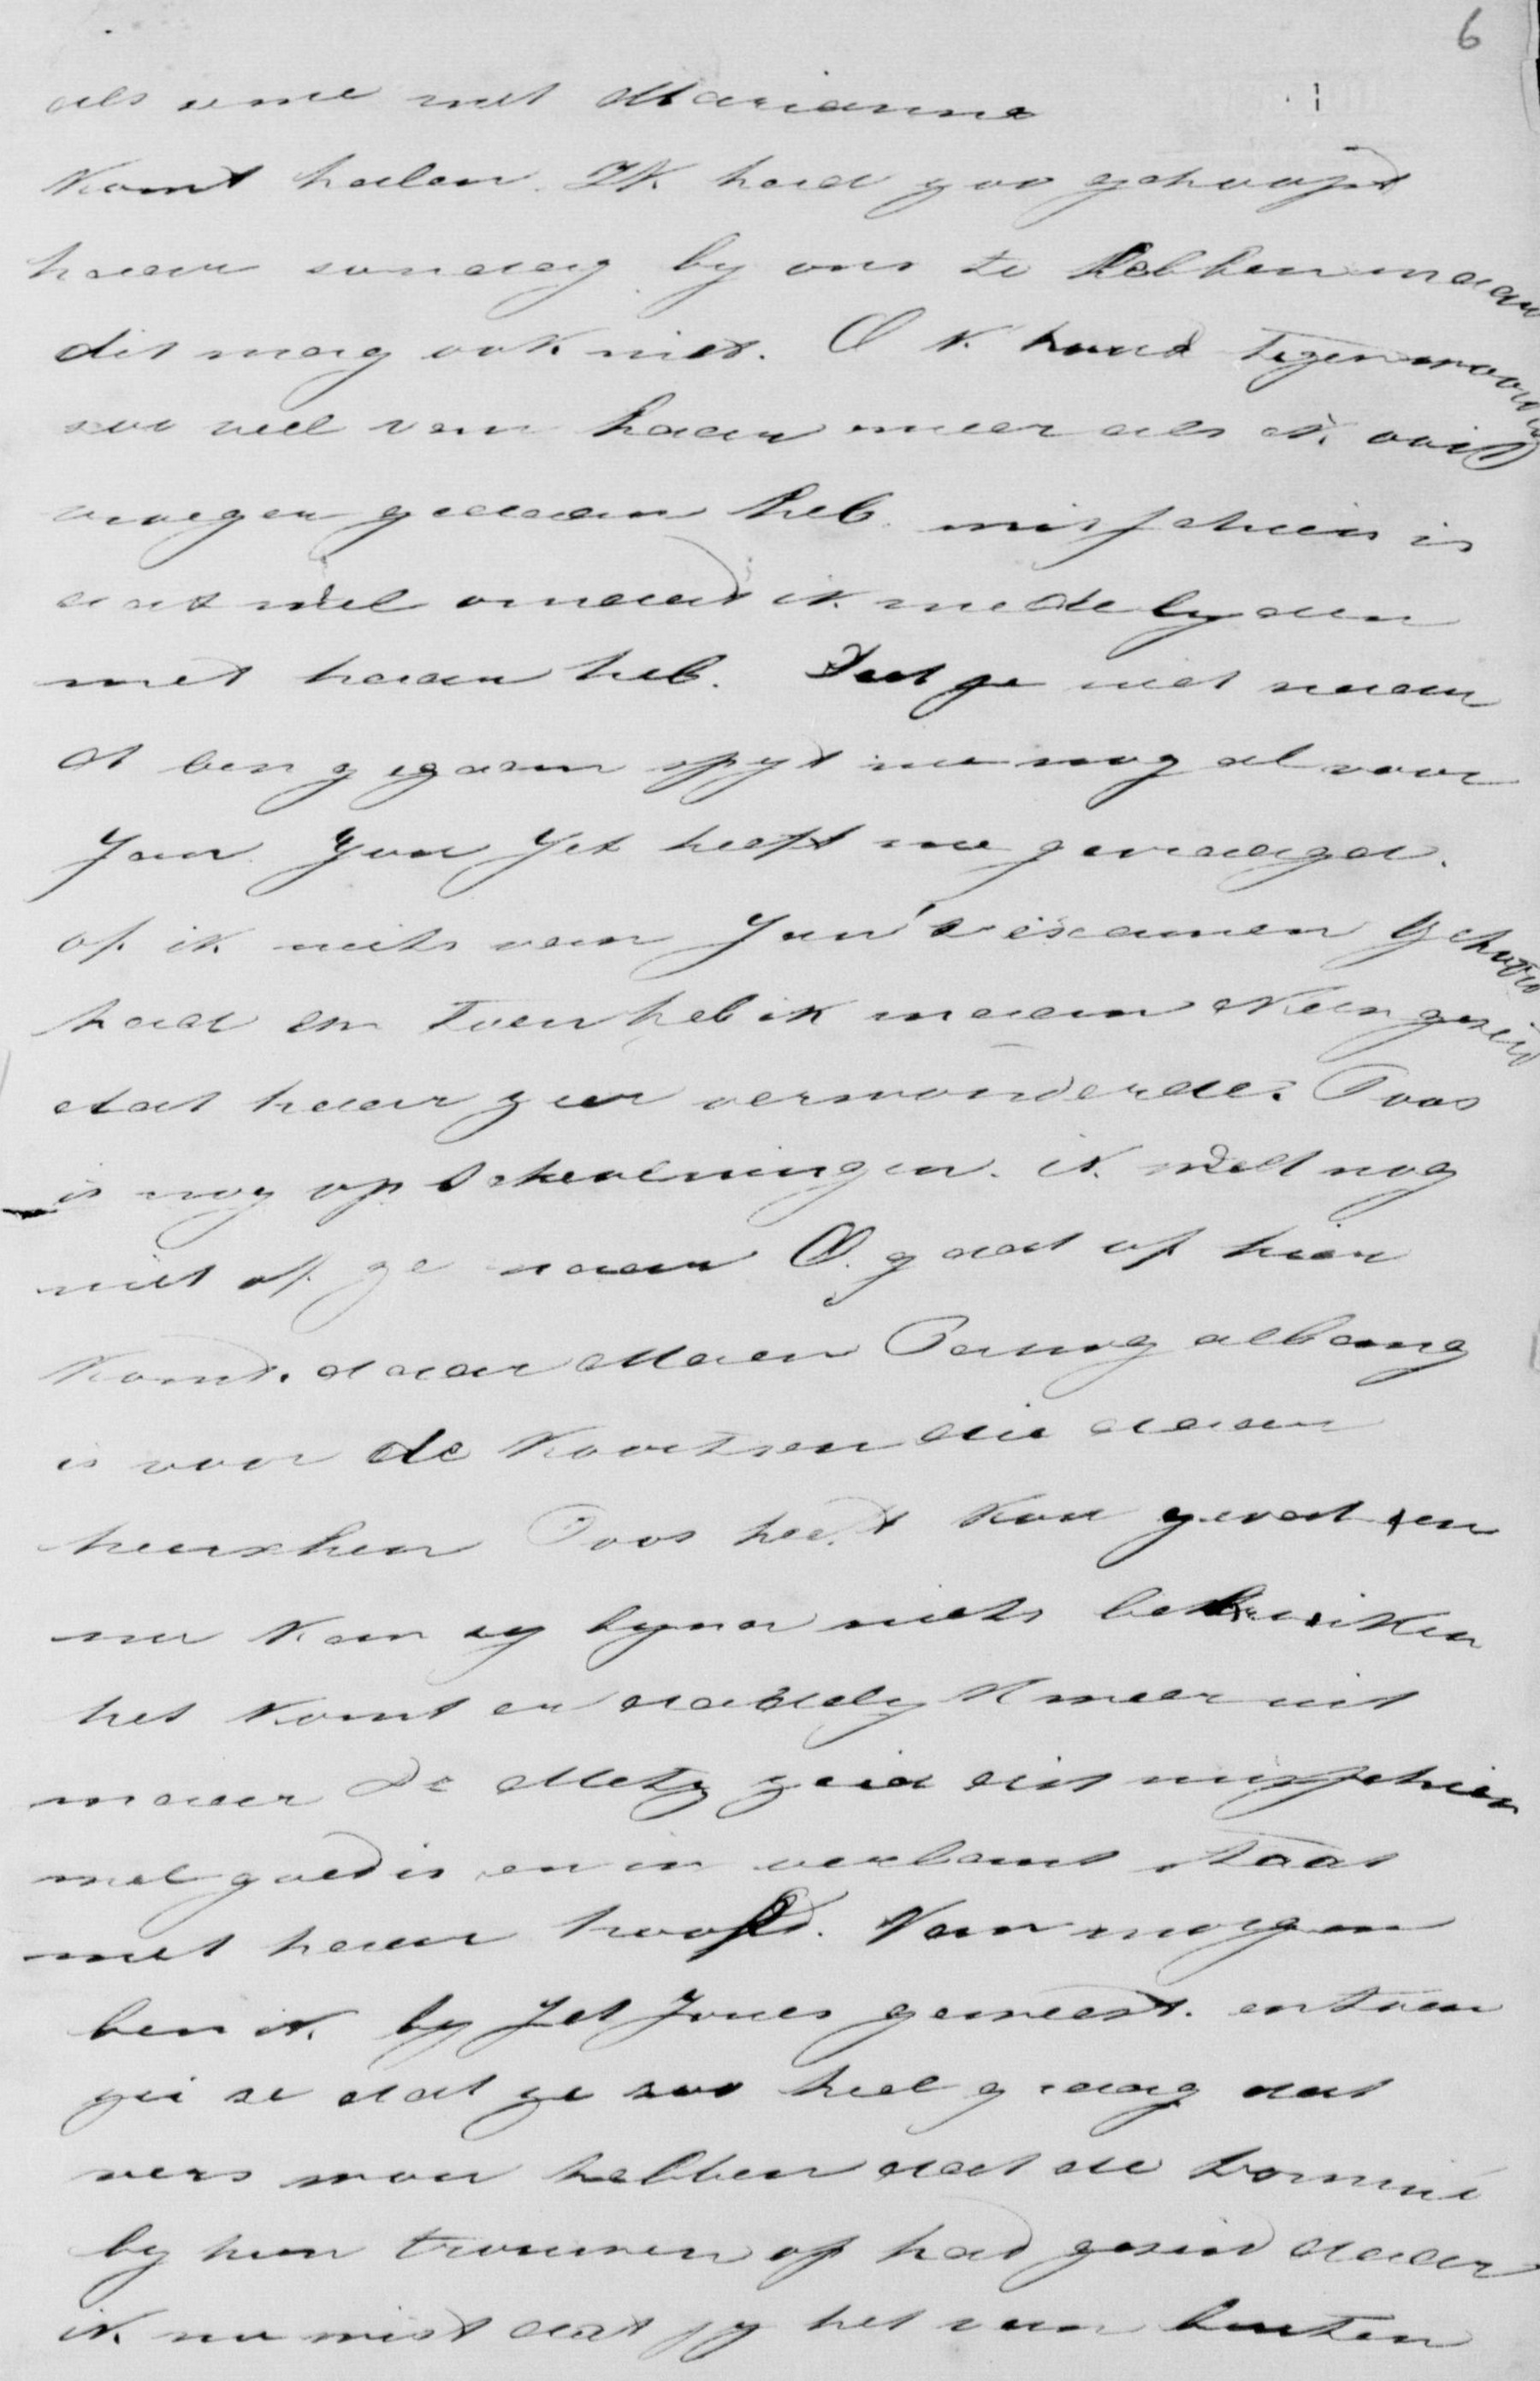 6
als we met Marianne
komt halen. Ik had zoo gehoopt
haar sondag by ons te hebben maar
dit mag ook niet. O k houd tegenwoordig
soo veel van haar meer als ik ooit
vroeger gedaan heb. misschien is
dat wel omdat ik medelyden
met haar heb. Dat ge niet naar
O ben gegaan spyt me nog al voor
Jan Jan Jet heeft me gevraagd.
of ik niets van Jan's examen gehoord
had en toen heb ik maar Neen gezeid
dat haar zeer verwonderde. Toos
is nog op Scheveningen. ik weet nog
niet of ze naar O. gaat of hier
komt. daar Maan Pa nog al bang
is voor de koortsen die daar
heerschen Toos heeft kou gevat en
nu kan sy byna niets betrikken
het komt er dadelyk weer uit
maar De Metz zeid dit misschien
wel goed is en in verband staat
met haar hoofd. Van morgen
ben ik by Jet Jones geweest. en toen
zei se dat ze soo heel graag dat
vers wou hebben dat de dominé
by hun trouwen op had gezeid daar
ik nu wist dat jy het van buiten